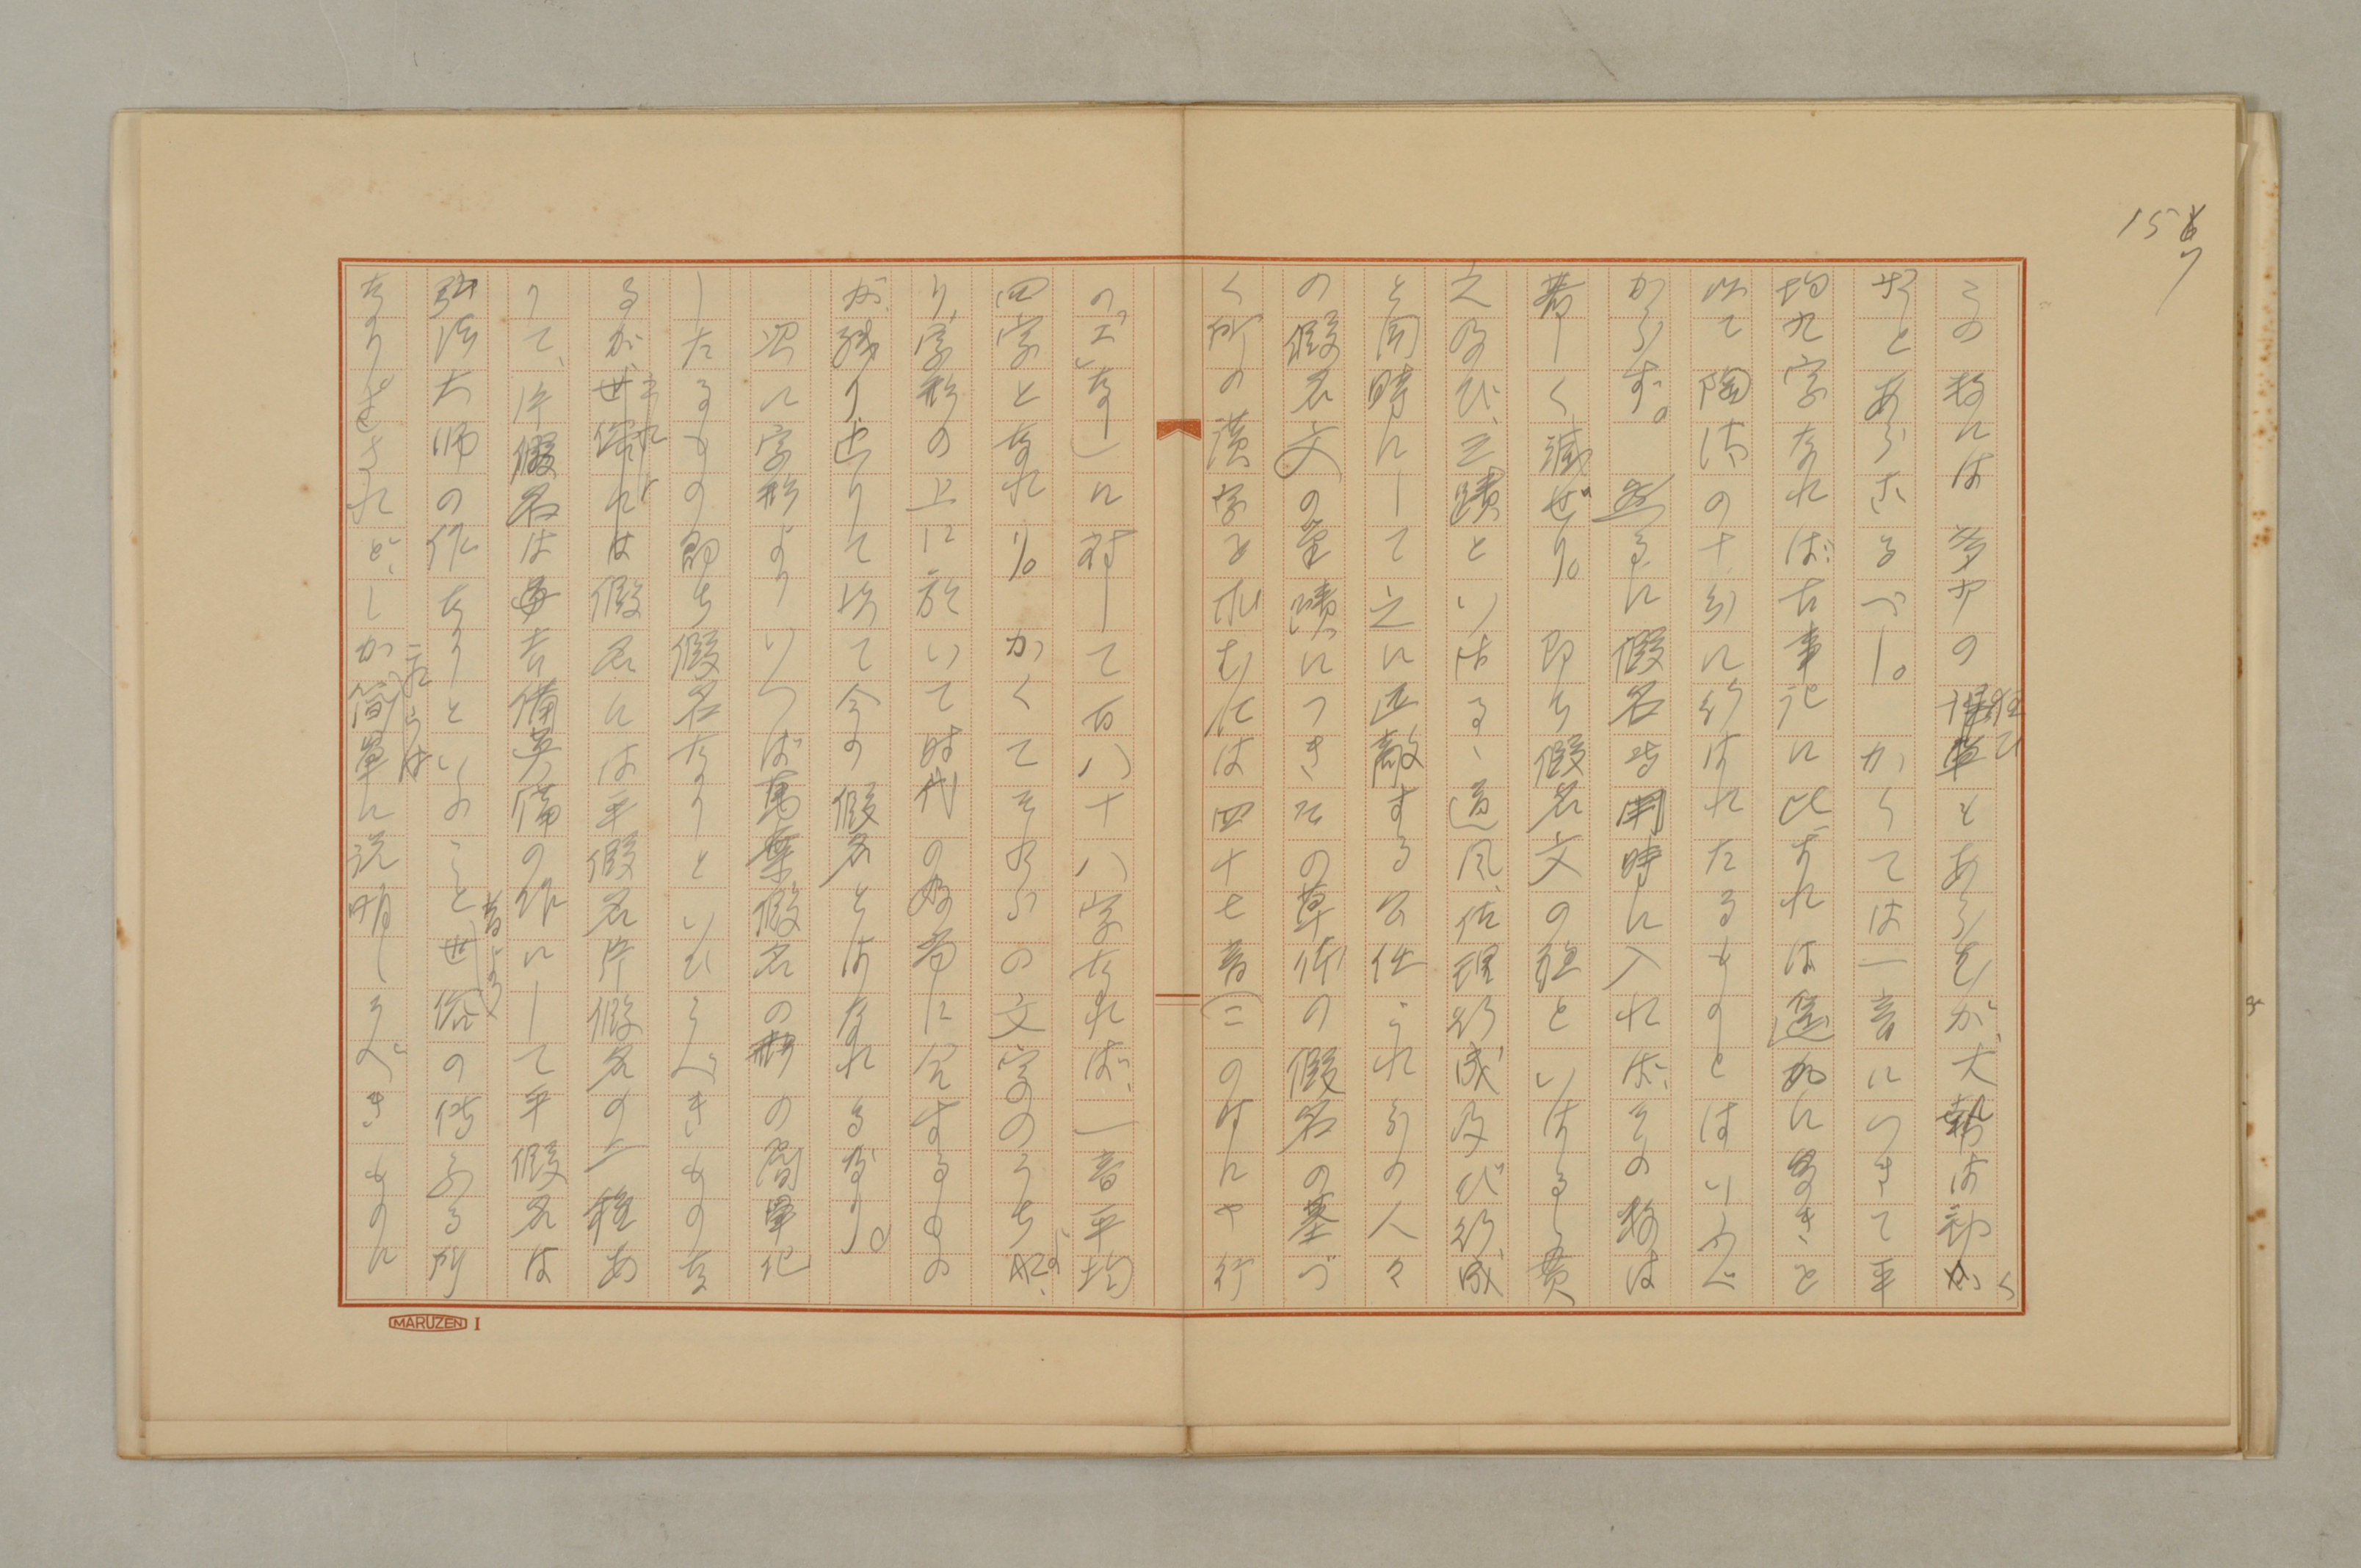 157
この數には多少の狂ひもあらむが、大勢は動か
ずとあらはるべし。かくては一音につきて平
均九字なれば、古事記に比すれば遥かに多きと
以て陶汰の十分に行はれたるものとはいふべ
からず。然るに假名専用時に入れば、その數は
著しく減ぜり。即ち假名文の祖といはるゝ貫
之及び、三蹟といはるゝ道風、佐理、行成及び行成
と同時にして之に匹敵する公任これらの人々
の假名文の筆蹟につき又の草体の假名の基づ
く所の漢字を求むれば四十七音(この外にや行
の「エ」なし)に対して百八十八字なれば、一音平均
四字となれり。かくてそれらの文字のうちより、
り、字形の上に於いて時代の好尚に合するもの
が残り、迠りて以て今の假名とはなれるなり。
次に字形よりいへば萬葉假名の形の簡單化
したるもの即ち假名なりといひうべきものな
るが、それは假名には平假名片假名の二種あ
りて、片假名は吉備真備の作にして平假名は
弘法大師の作なりといふこと昔よりの世俗の傳ふる所
なり。されど、これらはしか簡單に説明しうべきものに
MARUZEN I